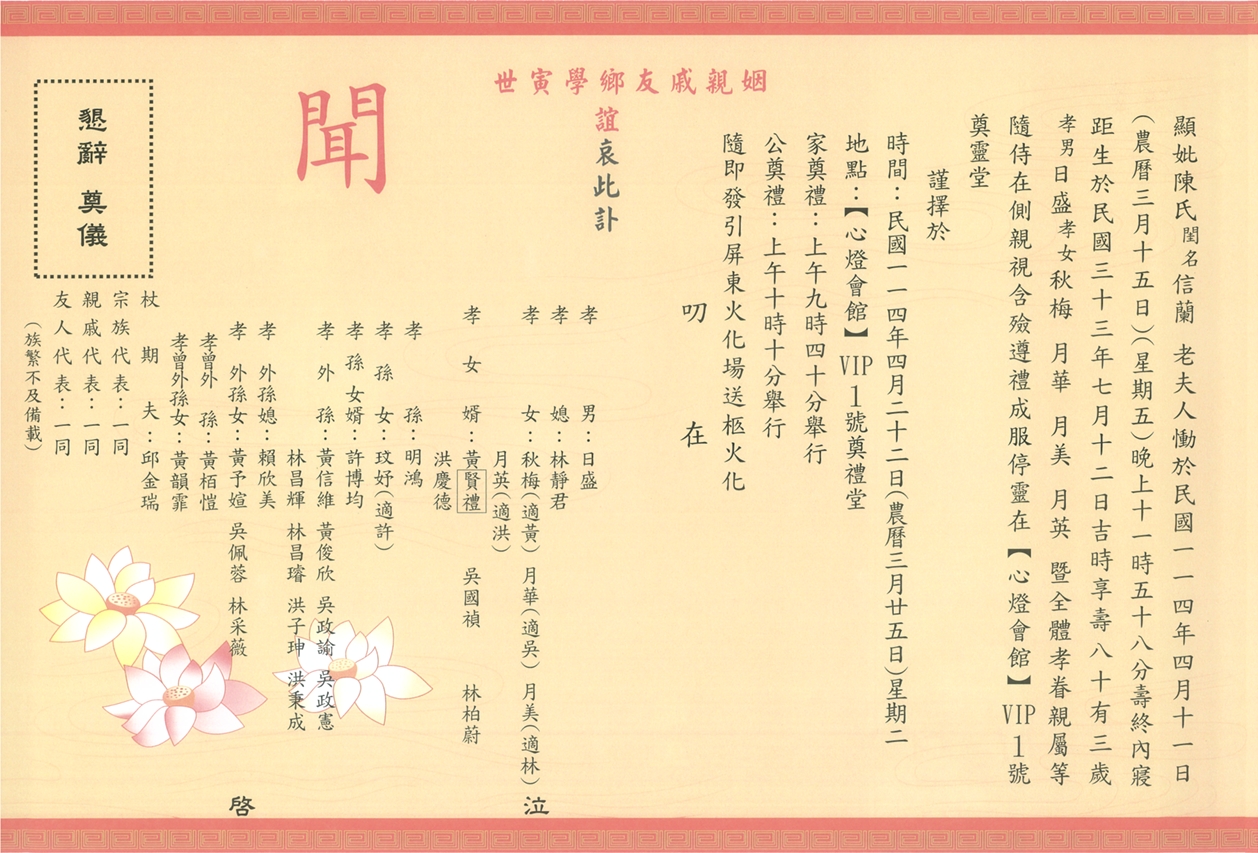 顯妣陳氏閨名信蘭 老夫人慟於民國一一四年四月十一日
(農曆三月十五日)(星期五)晚上十一時五十八分壽終內寢
距生於民國三十三年七月十二日吉時享壽八十有三歲
孝男日盛孝女秋梅 月華 月美 月英 暨全體孝眷親屬等
隨侍在側親視含殮遵禮成服停靈在【心燈會館】VIP1號
奠靈堂
謹擇於
時間：民國一一四年四月二十二日(農曆三月廿五日)星期二
地點：【心燈會館】VIP1號奠禮堂
家奠禮：上午九時四十分舉行
公奠禮：上午十時十分舉行
隨即發引屏東火化場送柩火化
叨 在
姻親戚友鄉學寅世
誼哀此訃
聞
孝男：日盛
孝媳：林靜君
孝女：秋梅(適黃) 月華(適吳) 月美(適林)
月英(適洪)
孝女婿：黃賢禮 吳國禎 林柏蔚
洪慶德
孝孫：明鴻
孝孫女：玟妤(適許)
孝孫女婿：許博均
孝外孫：黃信維 黃俊欣 吳政諭 吳政憲
林昌輝 林昌璿 洪子珅 洪秉成
孝外孫媳：賴欣美
孝外孫女：黃予媗 吳佩蓉 林采薇
孝曾外孫：黃栢愷
孝曾外孫女：黃韻霏
杖期夫：邱金瑞
宗族代表：一同
親戚代表：一同
友人代表：一同
(族繁不及備載)
泣
啓
懇辭 奠儀